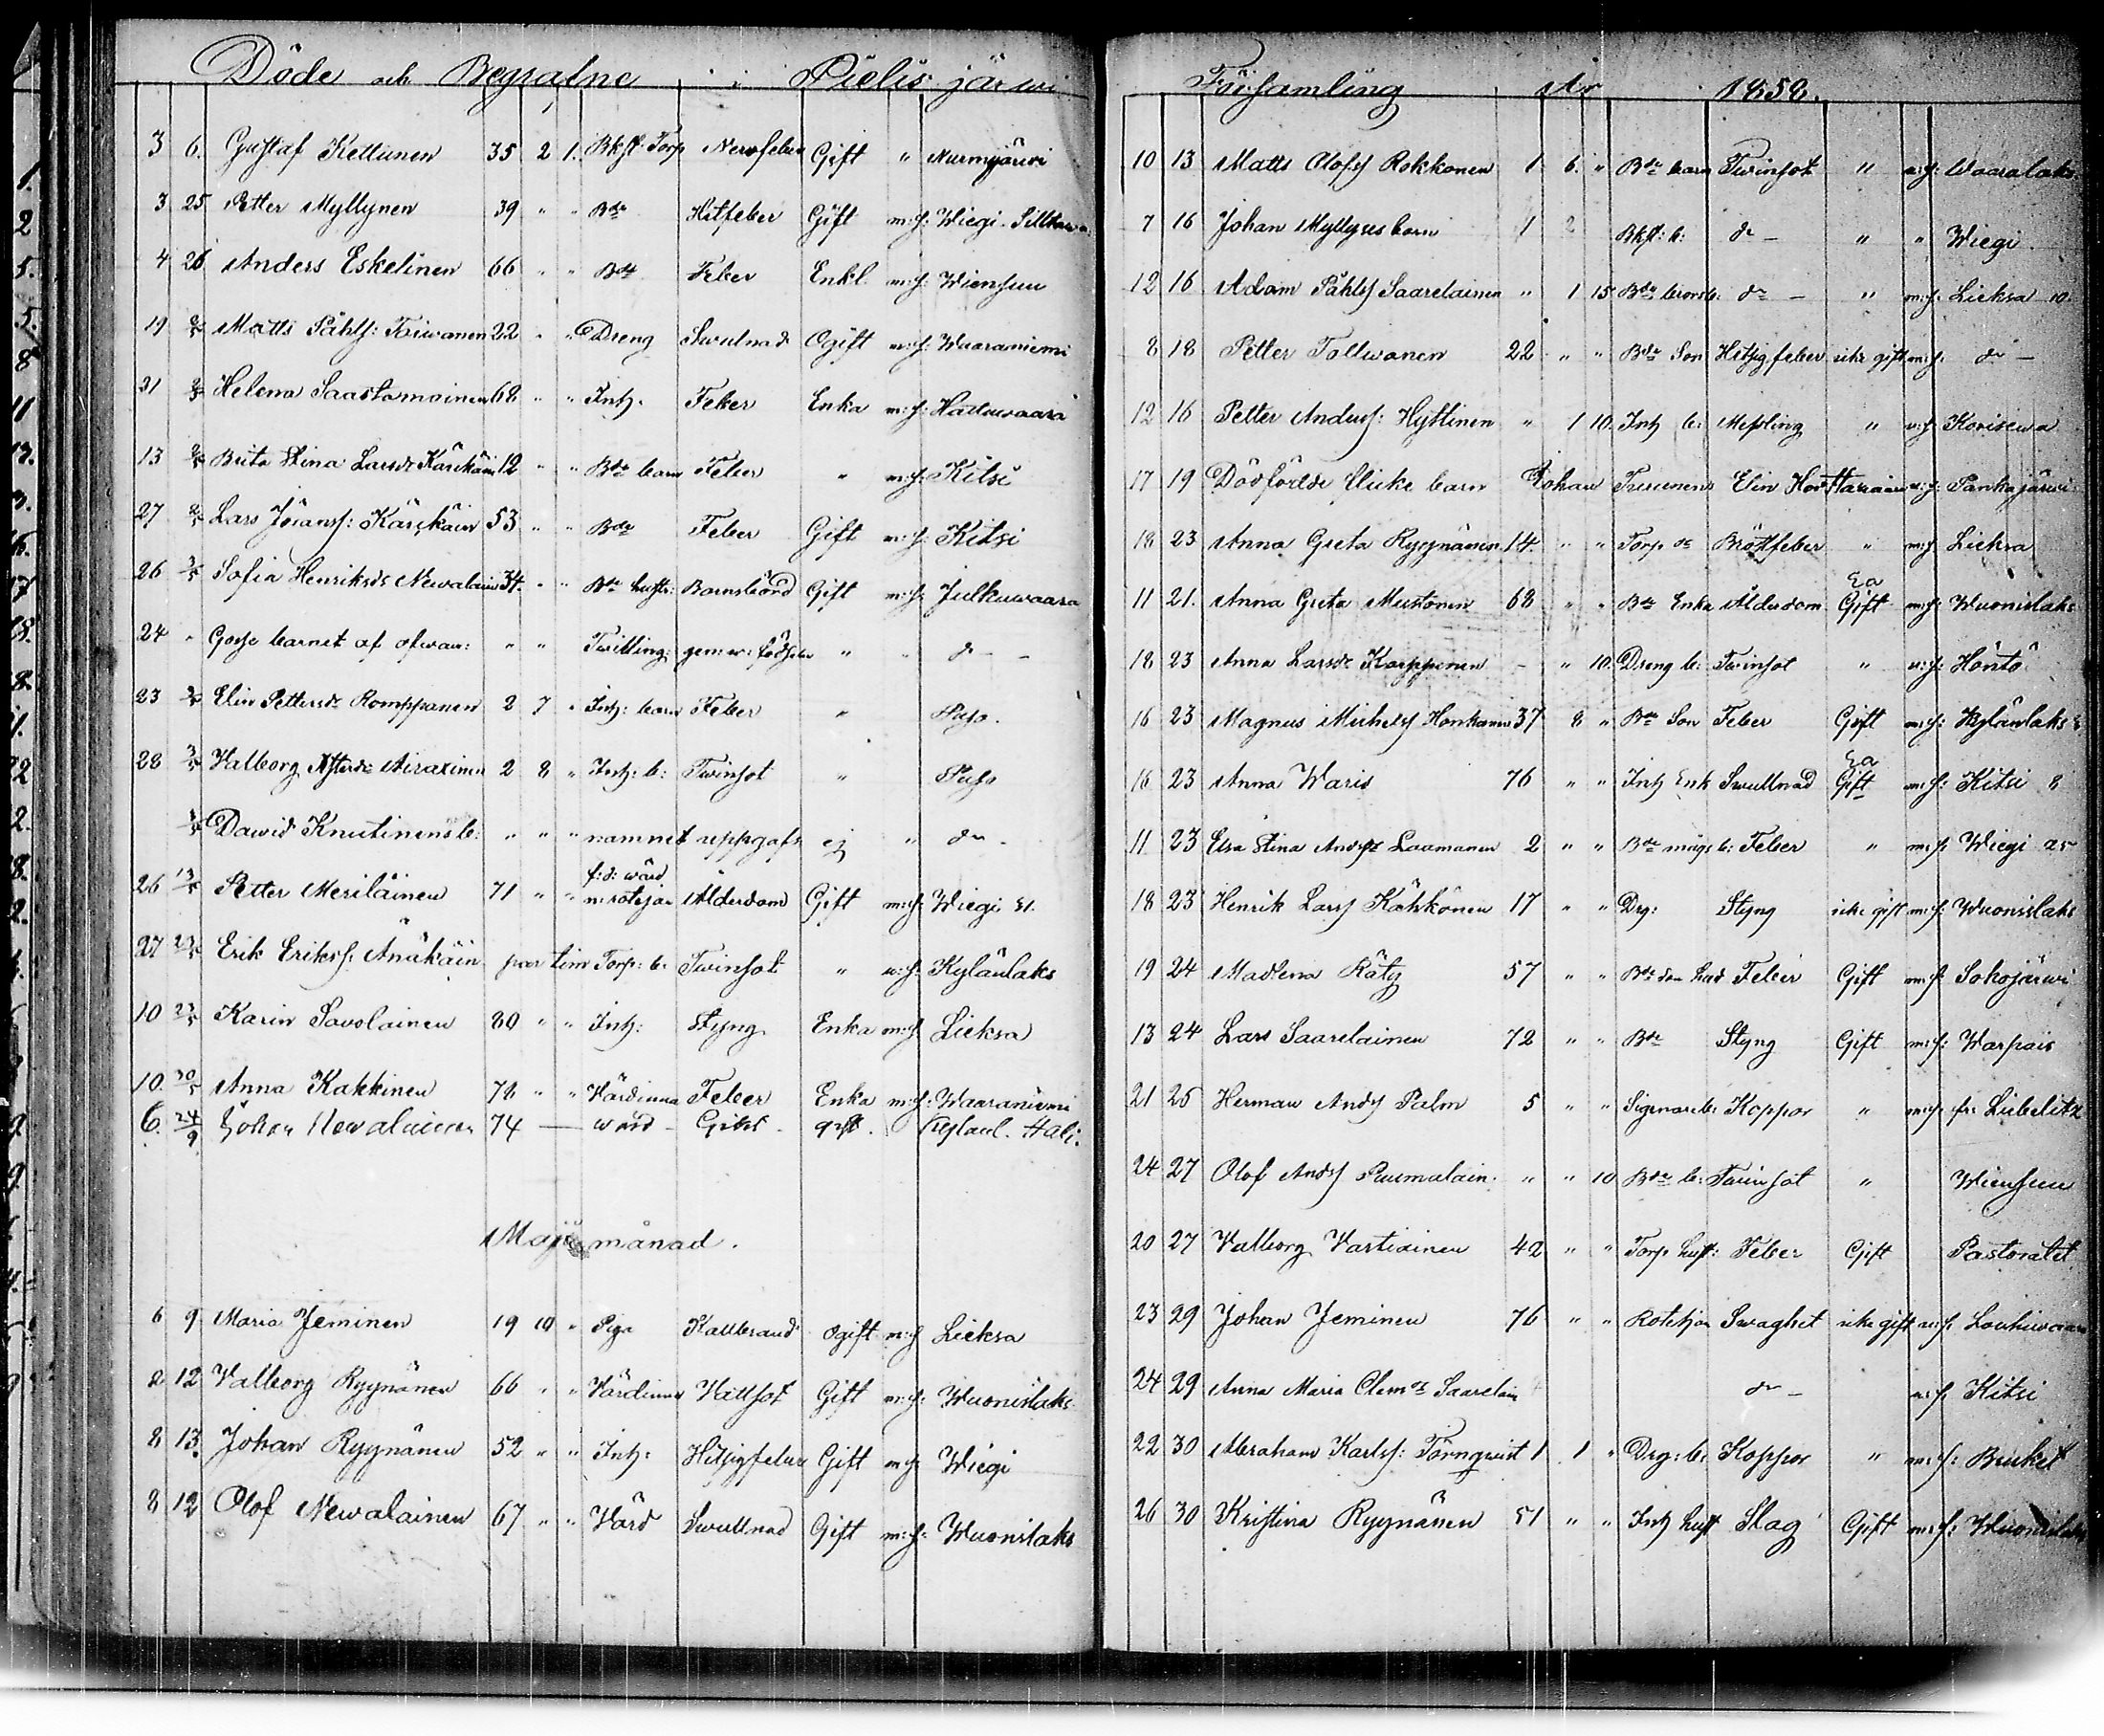 Döde och Begrafne i Pielisjärwi
3 6. Gustaf Kettunen 35 2 1. Bkft Torp Nervfeber Gift " Nurmijärvi
3 25 Petter Myllynen 39 " " Bde Hetfeber Gift m:f: Wiegi
4 26 Anders Eskelinen 66 " " Bde Feber Enkl. m:f: Wiensuu
19 Matts Påhlsf: Toiwanen 22 " " Dreng Swulnad Ogift m:f: Waaraniemi
21 Helena Saastamoinen 68 " " Inh. Feber Enka m:f: Hatuwaara
13 Brita Stina Larsdr Kärkäin 12 " " Bde barn Feber " m:f: Kitsi
27 Lars Jöransf: Kärkäin 53 " " Bde Feber Gift m:f: Kitsi
26 Sofia Henriksdr Newalain 34. " " Bde hustr: Barnsbörd Gift m:f: Julkuwaara
24 " Gosse barnet af ofwan: " " Twilling: genw: födseln " " do
23 Elin Pettersdr Romppanen 2 7 " Inh: barn Feber " Puso.
28 Valborg Airaxinen 2 8 " Inh: b: Twinsot " Puso
Dawid Knutinens b: " " " namnet uppgafs ej " do
26 13/5 Petter Meriläinen 71 " " f:d: wärd n: rotehjon Ålderdom Gift m:f: Wiegi 51.
27 23/5 Erik Eriksf: Änäkäin par tim Torp: b: Twinsot " m:f: Kylänlaks
10 23/5 Karin Savolainen 80 " " Inh: Styng Enka m:f: Lieksa
10. 30/5 Anna Kakkinen 78 " " Värdinna Feber Enka m:f: Waaraniemi
6. 24/9 Johan Newalainen 74 — wärd Gikt. gift. Kylänl. Hali.
Maji månad.
6 9 Maria Jeminen 19 10 " Piga Kallbrand ogift m:f: Lieksa
2 12 Valborg Ryynänen 66 " " Värdinna Vattsot Gift m:f: Wuonislaks
8 13. Johan Ryynänen 52 " " Inh: Hetsigfeber Gift m:f: Wiegi
8 12 Olof Newalainen 67 " " Värd Swullnad Gift m:f: Wuonislaks
Församling År 1858.
10 13 Matts Olofsf Rokkonen 1 6. " Bde barn Twinsot " m:f: Waaralaks
7 16 Johan Myllyses barn 1 2 Bkft: b: do " " Wiegi
12 16 Adam Påhlsf Saarelainen " 1 15 Bde b: do " m:f: Lieksa 10.
8 18 Petter Tolwanen 22 " " Bde Son Hetsigfeber icke gift m:f: do
12 16 Petter Andersf: Hyttinen " 1 10. Inh b: Messling " m:f: Koriseva
17 19 Dödfödde flicke barn Johan Turunens Elin m:f: Pankajärwi
18 23 Anna Greta Ryynänen 14. " " Torp dr Brötfeber " m:f: Lieksa
11 21. Anna Greta Mustonen 68 " " Bde Enka Ålderdom Ea Gift m:f: Wuonislaks
18 23 Anna Larsdr Karppinen " 10. Dreng b: Twinsot " m:f: Höntö
16 23 Magnus Michelsf Honkanen 37 8 " Bde Son Feber Gift m:f: Kylänlaks
16 23 Anna Waris 76 " " Inh Enk Swullnad Ea Gift m:f: Kitsi 8
11 23 Elsa Stina Andsdr Laamanen 2 " " Bde mågs b: Feber " m:f: Wiegi 25
18 23 Henrik Larsf Kähkönen 17 " " Drg: Styng icke gift m:f: Wuonislaks
19 24 Madlena Räty 57 " " Bde Feber Gift m:f: Sokojärwi
13 24 Lars Saarelainen 72 " " Bde Styng Gift m:f: Warpais
21 25 Herman Andsf Palm 5 " " b: Koppor " m:f: fr: Libelitz
24 27 Olof Andsf Puumalain. " " 10 Bde b: Twinsot " Wiensuu
20 27 Valborg Vartiainen 42 " " Torp hust: Feber Gift Pastoratet
23 29 Johan Jeminen 76 " " Rotehjon Swaghet icke gift m:f: Louhiwaara
24 29 Anna Maria Clemdr Saarelain do m:f. Kitsi
22 30 Abraham Karlsf: Törnqvist 1 1 " Drg: b: Koppor " m:f: Bruket
26 30 Kristina Ryynänen 51 " " Inh hust Slag Gift m:f: Wuonislaks